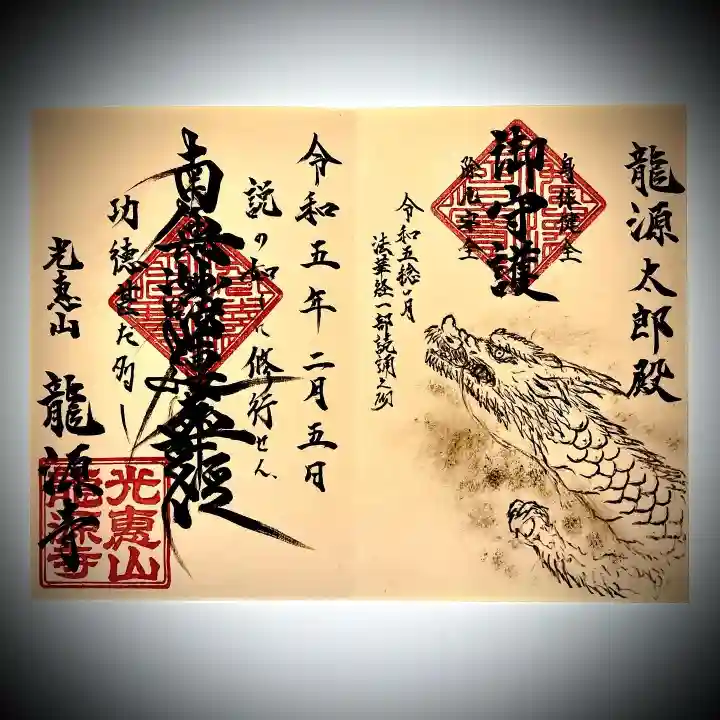 龍源太郎殿
身体健全
御守護
除厄安全
令和五稔二月
法華経一部読誦之砌
令和五年二月五日
説の如く修行せん
南無妙法蓮華経
功徳また多し
光恵山
龍源寺
光恵山
龍源寺